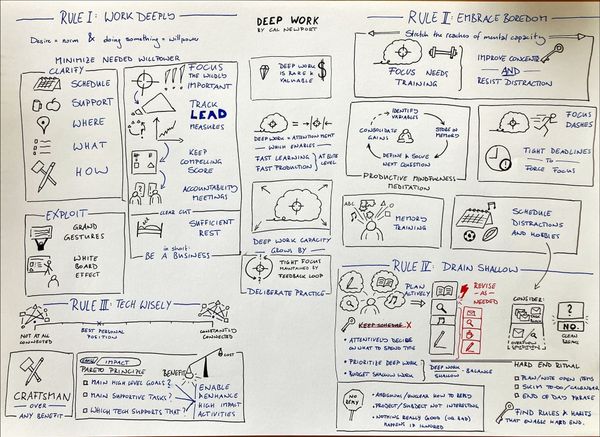 RULE I: WORK DEEPLY
Desire = norm & doing something = willpower
MINIMIZE NEEDED WILLPOWER
CLARITY
SCHEDULE
SUPPORT
WHERE
WHAT
HOW
FOCUS
THE WILDLY
IMPORTANT
TRACK
LEAD
MEASURES
KEEP
COMPELLING
SCORE
ACCOUNTABILITY
MEETINGS
CLEAR CUT
SUFFICIENT
REST
in short:
BE A BUSINESS
EXPLOIT
GRAND
GESTURES
WHITE
BOARD
EFFECT
DEEP WORK
BY CAL NEWPORT
DEEP WORK
IS RARE &
VALUABLE
$
DEEP WORK =
WHICH ENABLES
FAST LEARNING
FAST PRODUCTION
AT ELITE
LEVEL
DEEP WORK CAPACITY
GROWS BY
TIGHT FOCUS
MAINTAINED BY
FEEDBACK LOOP
DELIBERATE PRACTICE
RULE II: EMBRACE BOREDOM
Stretch the reaches of mental capacity
FOCUS NEEDS
TRAINING
IMPROVE CONCENTR.
AND
RESIST DISTRACTION
IDENTIFY
VARIABLES
STORE IN
MEMORY
DEFINE & SOLVE
NEXT QUESTION
CONSOLIDATE
GAINS
PRODUCTIVE MINDFULNESS
MEDITATION
FOCUS
DASHES
TIGHT DEADLINES
TO
FORCE FOCUS
ABC
MEMORY
TRAINING
SCHEDULE
DISTRACTIONS
AND HOBBIES
RULE III: TECH WISELY
NOT AT ALL
CONNECTED
BEST PERSONAL
POSITION
CONSTANTLY
CONNECTED
CRAFTSMAN
OVER
ANY BENEFIT
IMPACT
PARETO PRINCIPLE
MAIN HIGH LEVEL GOALS?
MAIN SUPPORTIVE TASKS?
WHICH TECH SUPPORTS THAT?
BENEFIT
COST
ENABLE
& ENHANCE
HIGH IMPACT
ACTIVITIES
RULE IV: DRAIN SHALLOW
PLAN
ACTIVELY
REVISE
AS
NEEDED
KEEP SCHEDULE X
ATTENTIVELY DECIDE
ON WHAT TO SPEND TIME
PRIORITIZE DEEP WORK
BUDGET SHALLOW WORK
DEEP WORK
SHALLOW
BALANCE
CONSIDER:
?
NO.
CLEAN
BREAKS
NO
REPLY
AMBIGUOUS / UNCLEAR HOW TO REPLY
PROJECT/SUBJECT NOT INTERESTING
NOTHING REALLY GOOD (OR BAD)
HAPPENS IF IGNORED
HARD END RITUAL
PLAN/NOTE OPEN ITEMS
SKIM TO-DO/CALENDAR
END OF DAY PHRASE
FIND RULES & HABITS
THAT ENABLE HARD END.